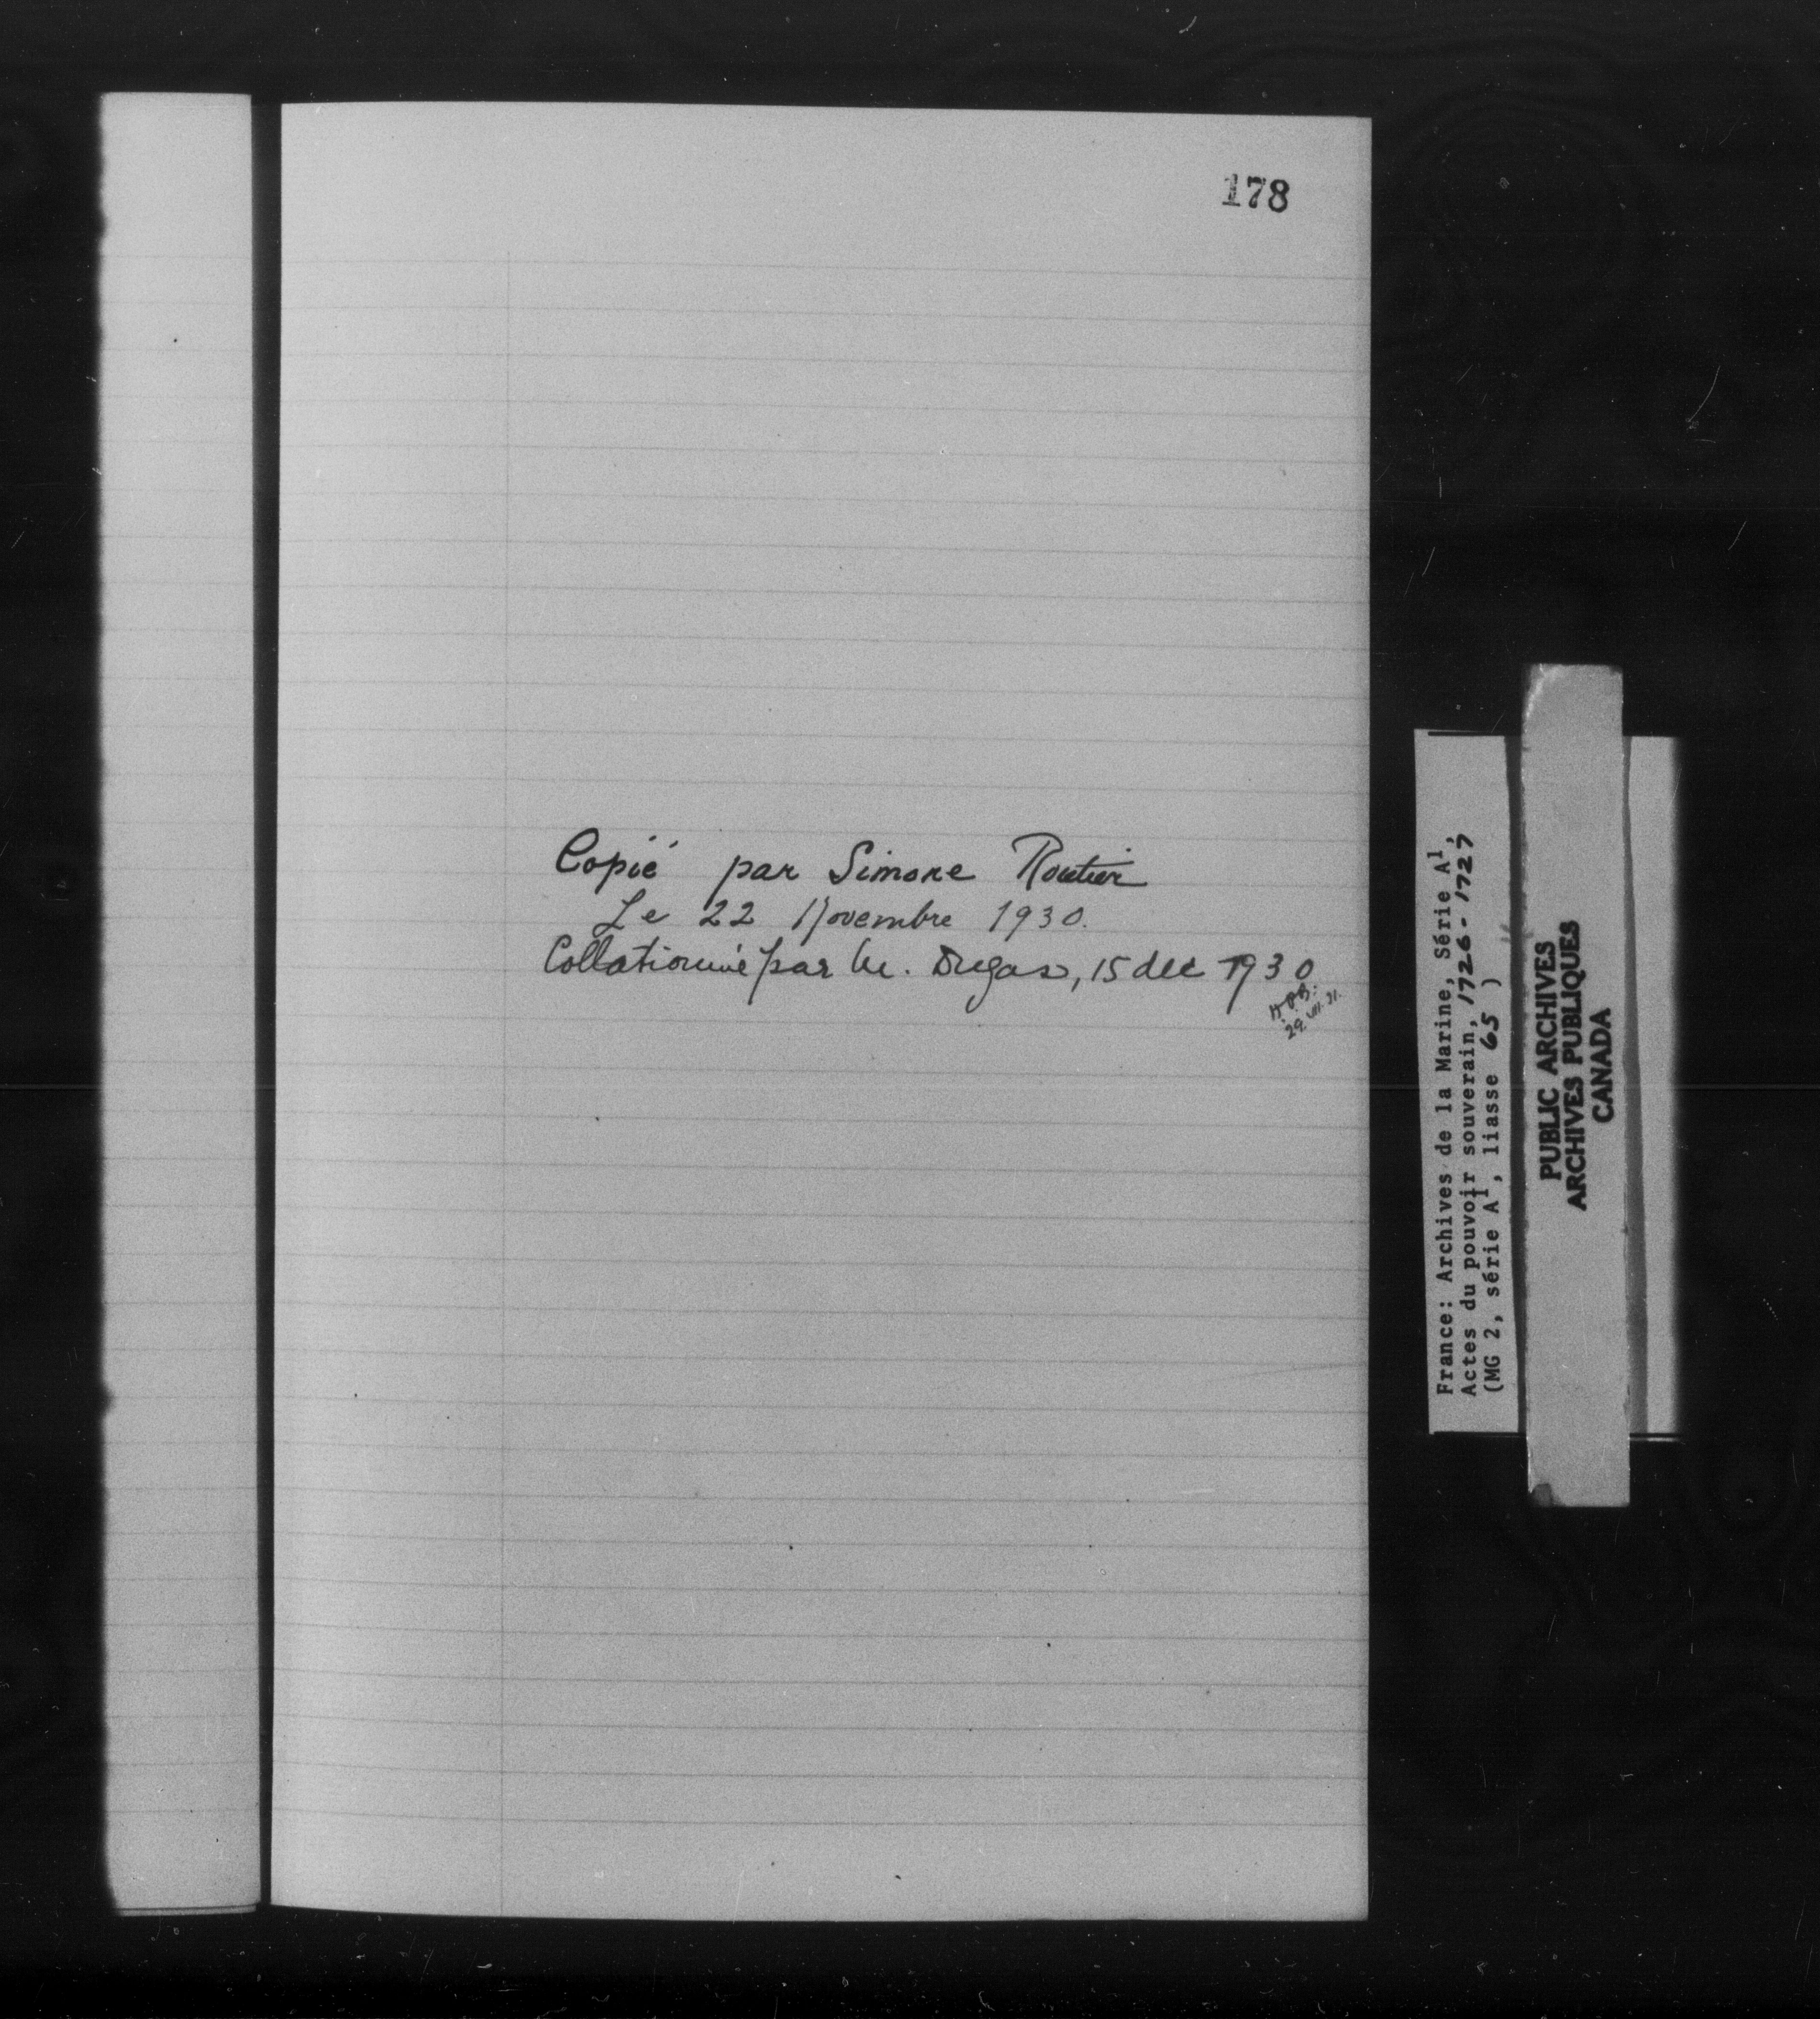 178
Copié par Simone Routier
Le 22 Novembre 1930.
Collationné par M. Dugas, 15 dec 1930
29.VII.31.
France: Archives de la Marine, Série A¹,
Actes du pouvoir souverain, 1726-1727
(MG 2, série A¹, liasse 65 )
PUBLIC ARCHIVES
ARCHIVES PUBLIQUES
CANADA